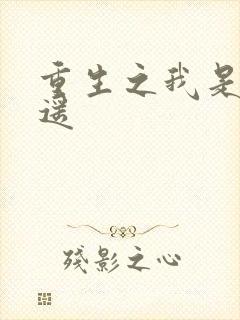 重生之我是
遥
残影之心